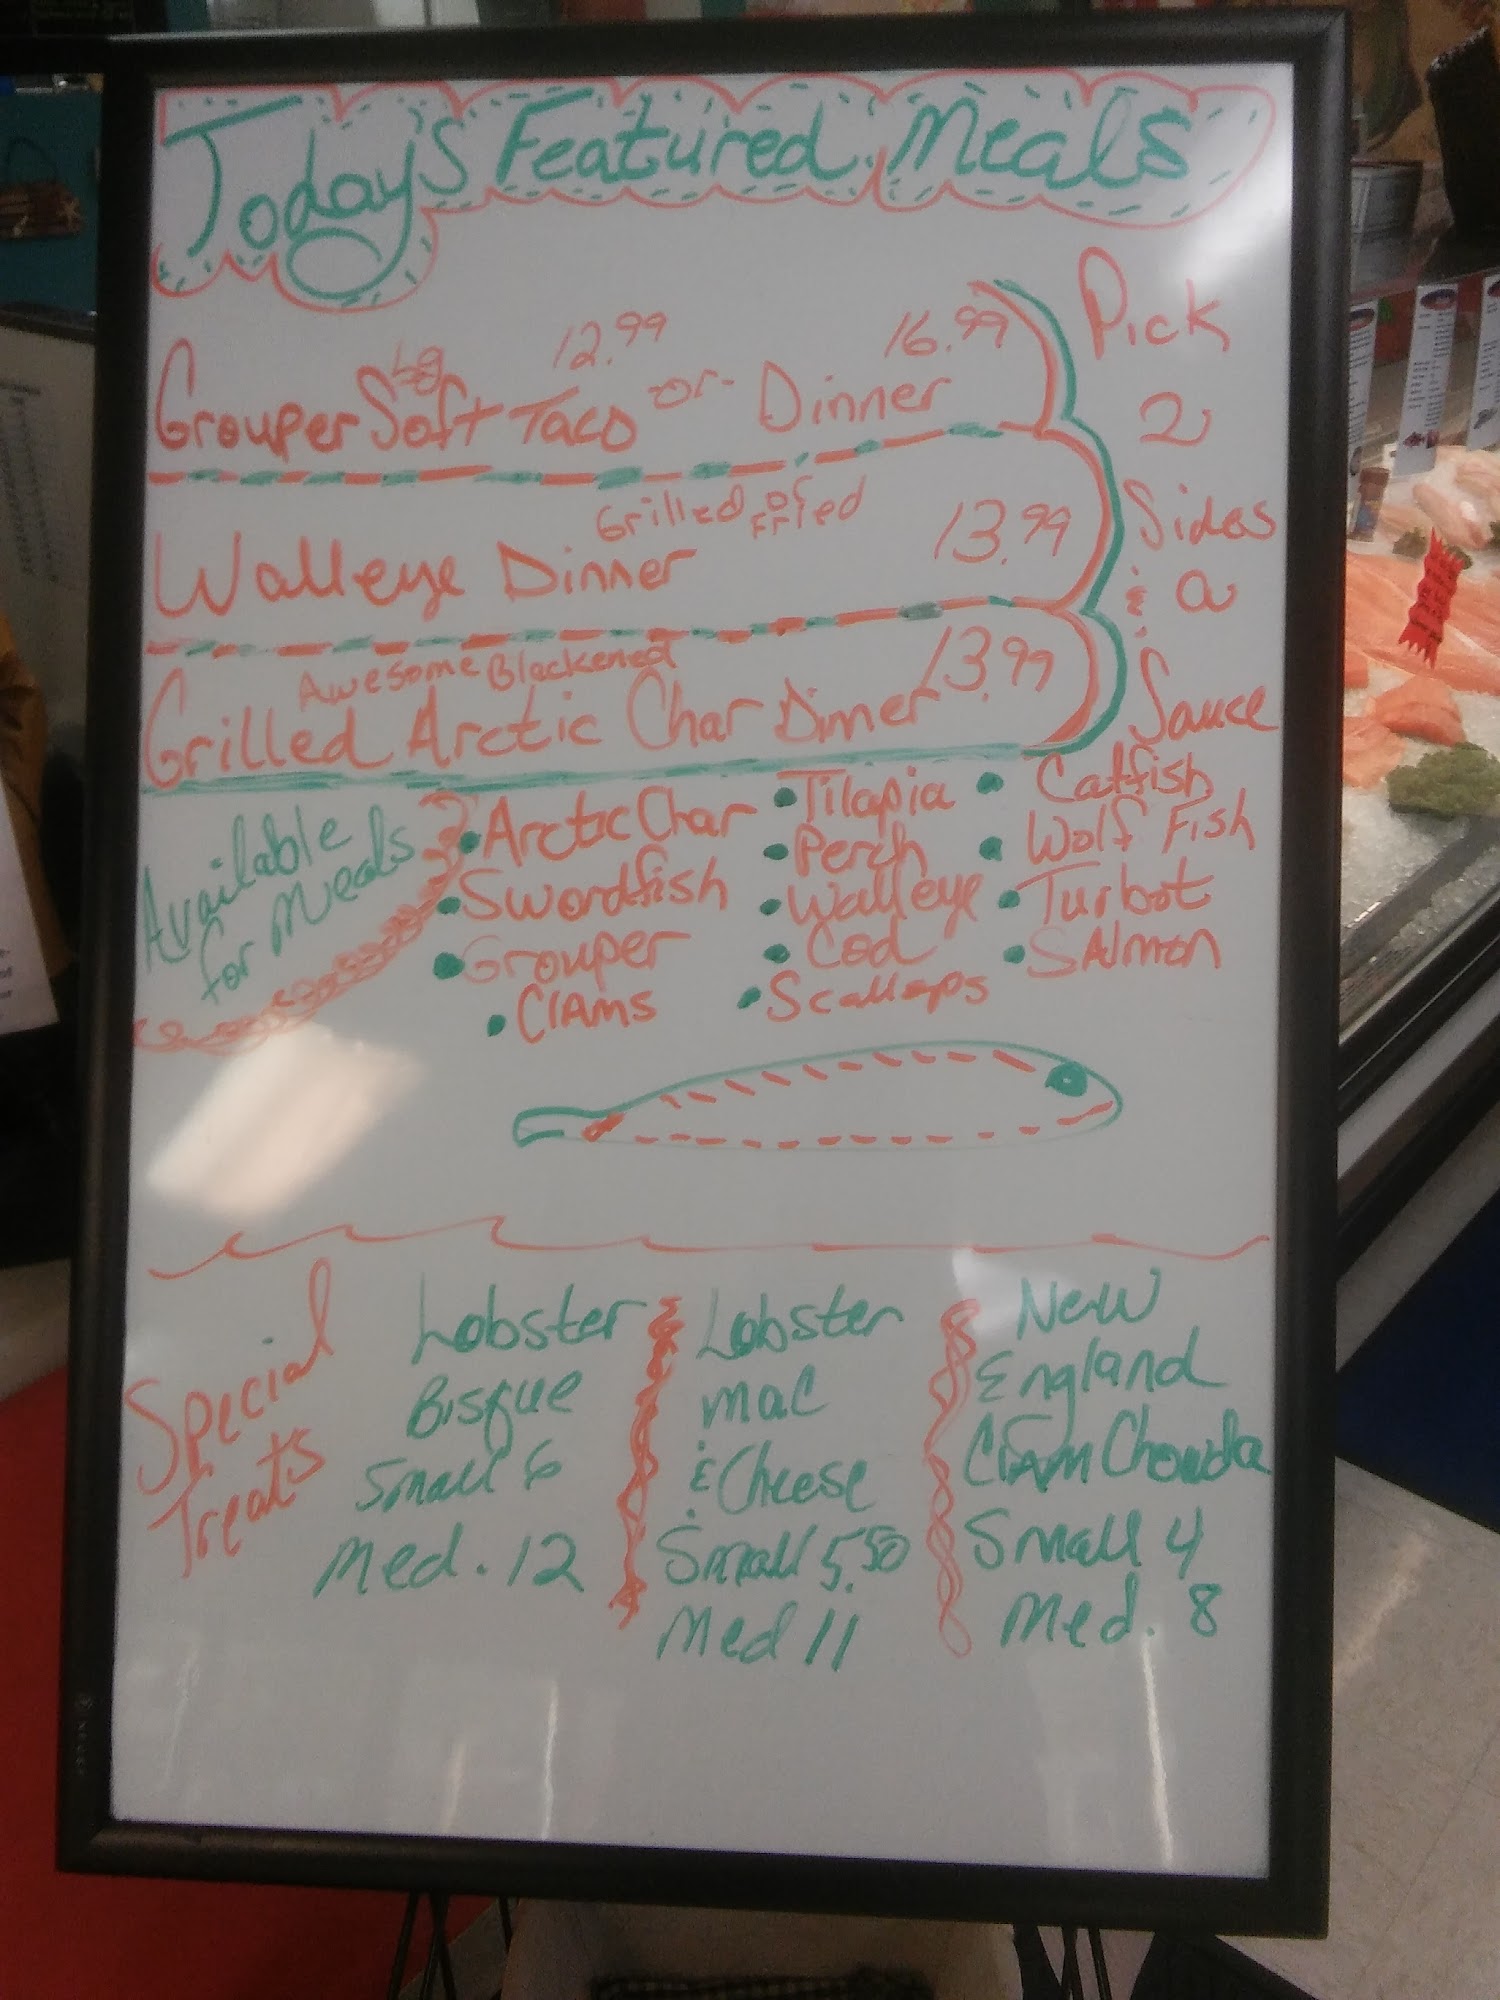 Today's Featured Meals
Lg 12.99 16.99
Grouper Soft Taco -or- Dinner
Grilled or Fried
Walleye Dinner 13.99
Awesome Blackened
Grilled Arctic Char Dinner 13.99
Pick
2
Sides
& a
Sauce
Available
for Meals
• Arctic Char
• Swordfish
• Grouper
• Clams
• Tilapia
• Perch
• Walleye
• Cod
• Scallops
• Catfish
• Wolf Fish
• Turbot
• Salmon
Special
Treats
Lobster
Bisque
Small 6
Med. 12
Lobster
Mac
& Cheese
Small 5.50
Med 11
New
England
Clam Chowda
Small 4
Med. 8